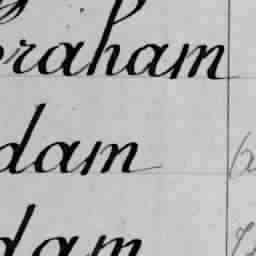 braham
dam
dam